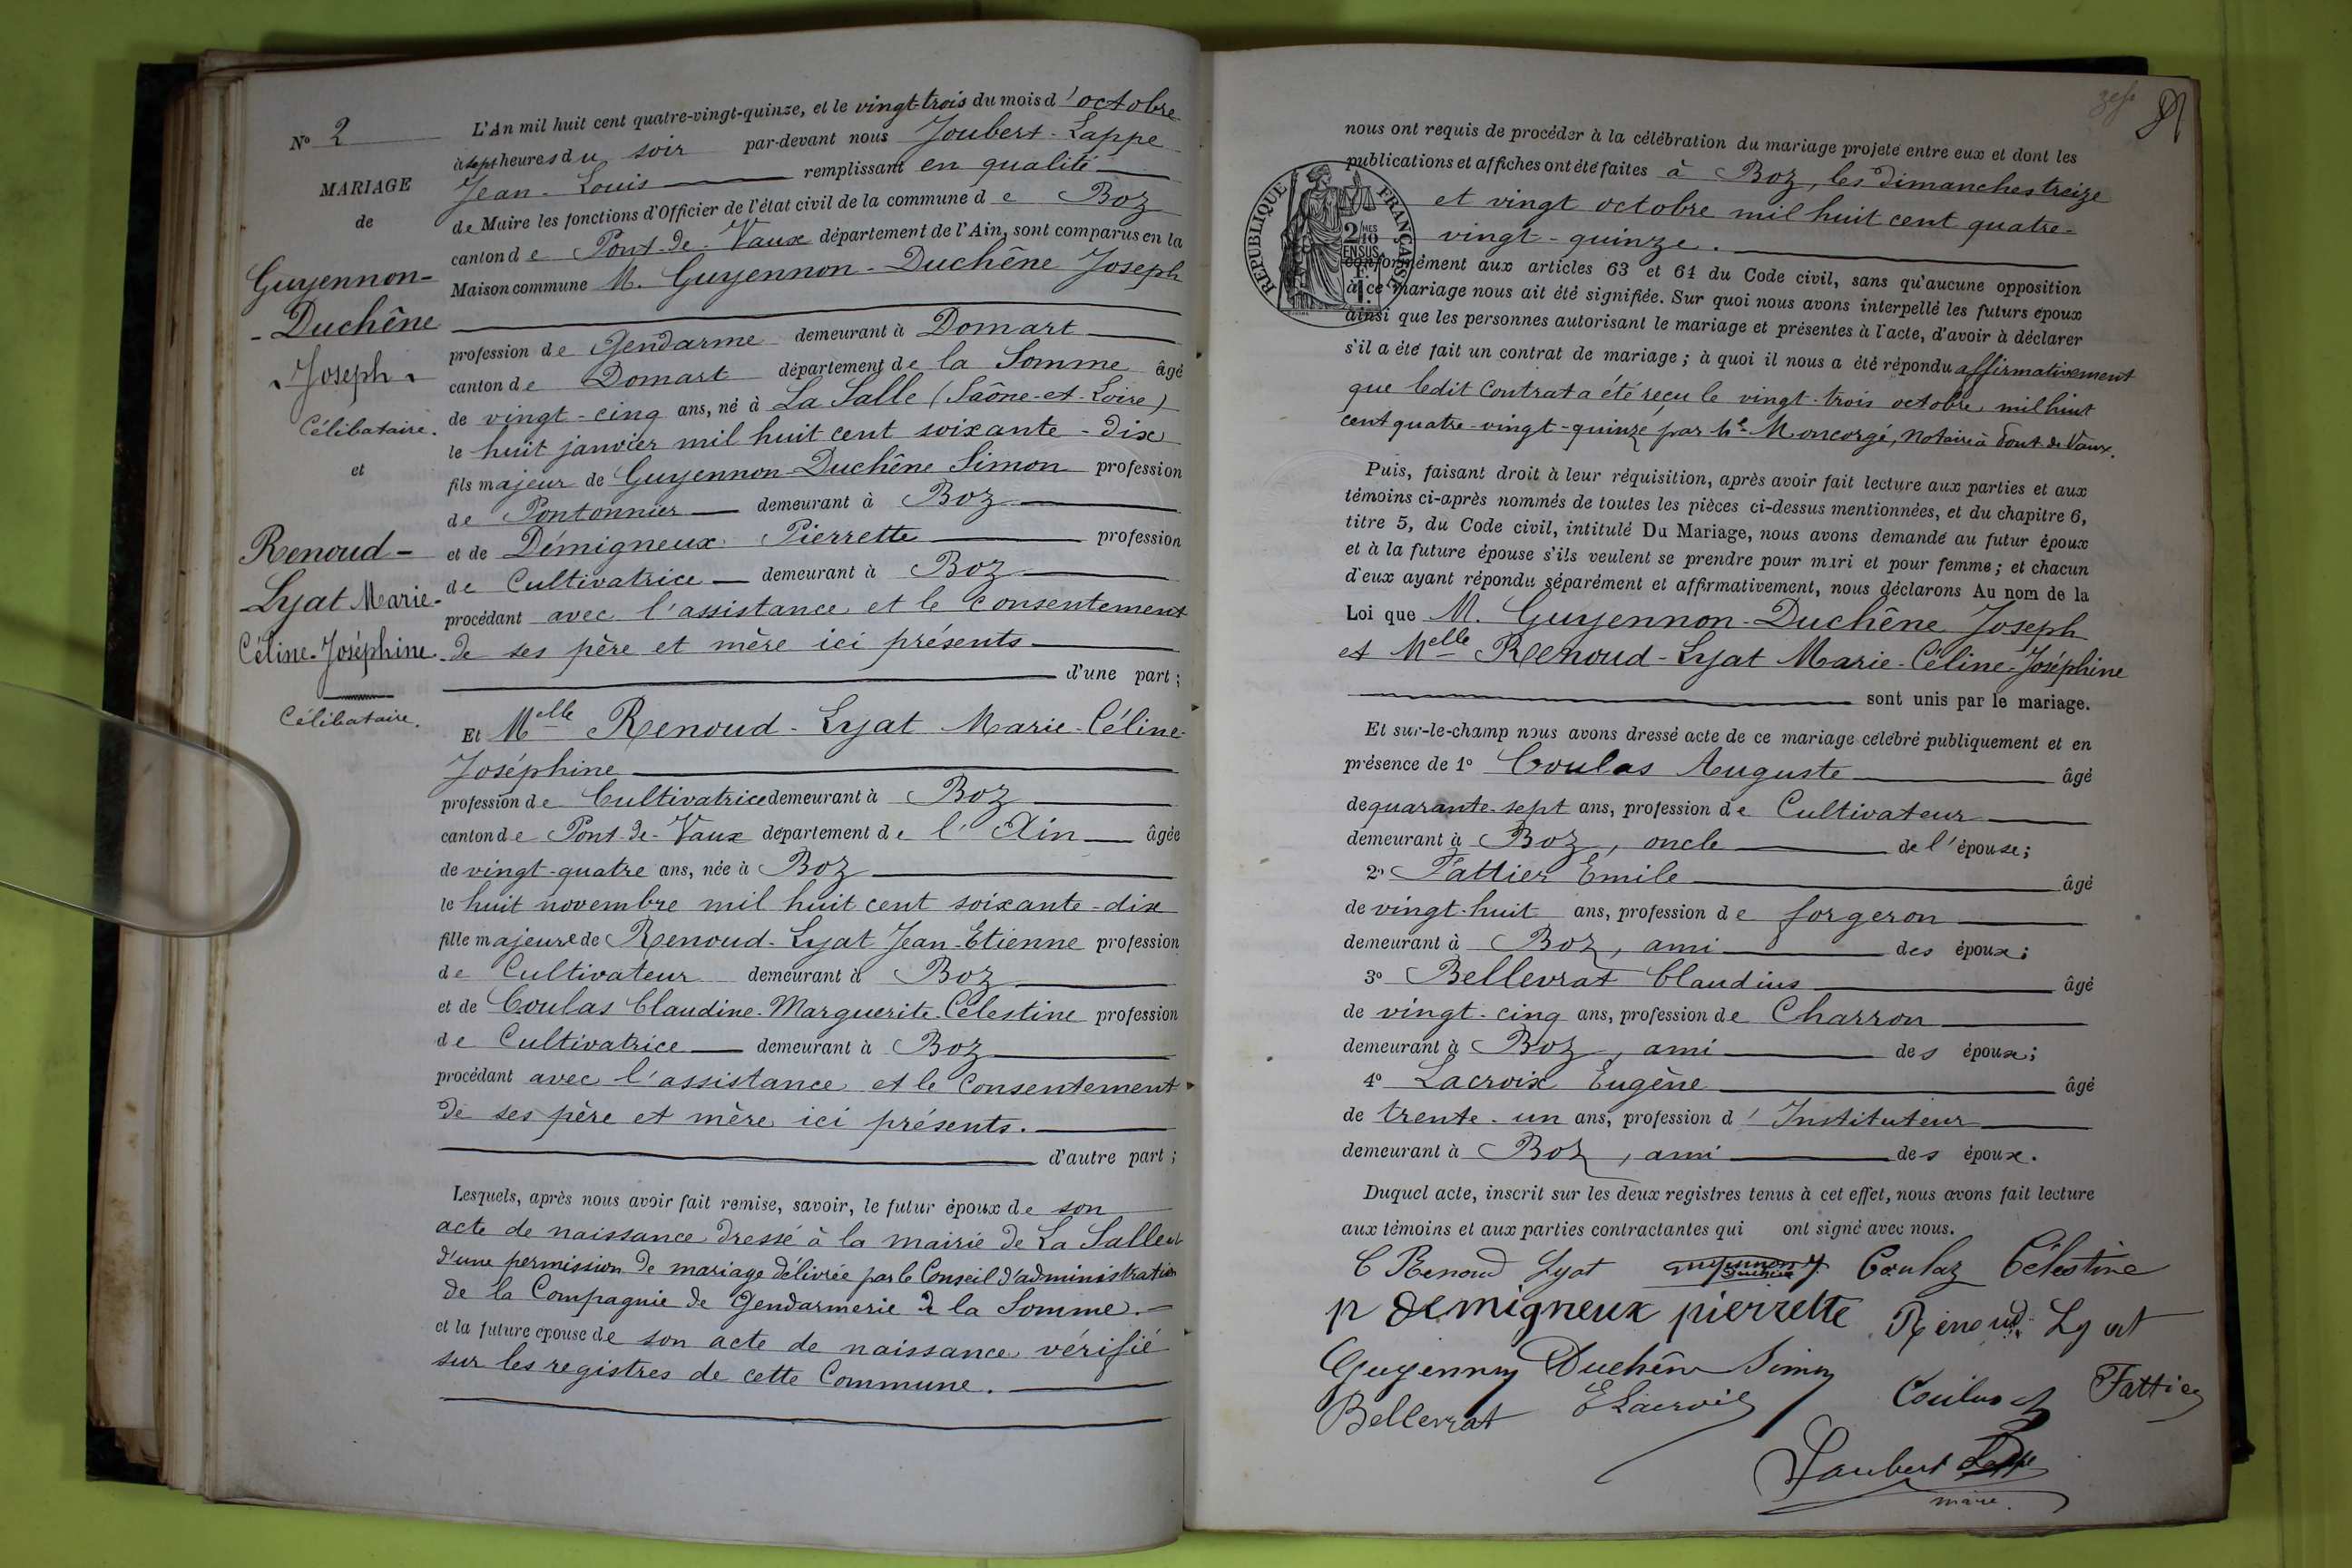 N° 2
MARIAGE
de
Guyennon-
-Duchêne
Joseph
Célibataire.
et
Renoud-
Lyat Marie-
Céline-Joséphine.
Célibataire.
L'An mil huit cent quatre-vingt-quinze, et le vingt-trois du mois d'octobre
à sept heures du soir par-devant nous Joubert-Lappe
Jean-Louis remplissant en qualité
de Maire les fonctions d'Officier de l'état civil de la commune de Boz
canton de Pont-de-Vaux département de l'Ain, sont comparus en la
Maison commune M. Guyennon-Duchêne Joseph
profession de Gendarme demeurant à Domart
canton de Domart département de la Somme âgé
de vingt-cinq ans, né à La Salle (Saône-et-Loire)
le huit janvier mil huit cent soixante-dix
fils majeur de Guyennon-Duchêne Simon profession
de Pontonnier demeurant à Boz
et de Démigneux Pierrette profession
de Cultivatrice demeurant à Boz
procédant avec l'assistance et le consentement
de ses père et mère ici présents
d'une part;
Et Melle Renoud-Lyat Marie-Céline-
Joséphine
profession de Cultivatrice demeurant à Boz
canton de Pont-de-Vaux département de l'Ain âgée
de vingt-quatre ans, née à Boz
le huit novembre mil huit cent soixante-dix
fille majeure de Renoud-Lyat Jean-Etienne profession
de Cultivateur demeurant à Boz
et de Coulas Claudine-Marguerite-Célestine profession
de Cultivatrice demeurant à Boz
procédant avec l'assistance et le consentement
de ses père et mère ici présents.
d'autre part;
Lesquels, après nous avoir fait remise, savoir, le futur époux de son
acte de naissance dressé à la mairie de La Salle et
d'une permission de mariage délivrée par le Conseil d'administration
de la Compagnie de Gendarmerie de la Somme.
et la future épouse de son acte de naissance vérifié
sur les registres de cette Commune.
nous ont requis de procéder à la célébration du mariage projeté entre eux et dont les
publications et affiches ont été faites à Boz, les dimanches treize
et vingt octobre mil huit cent quatre-
vingt-quinze.
RÉPUBLIQUE FRANÇAISE
2/10 MES
EN SUS
conformément aux articles 63 et 64 du Code civil, sans qu'aucune opposition
à ce mariage nous ait été signifiée. Sur quoi nous avons interpellé les futurs époux
ainsi que les personnes autorisant le mariage et présentes à l'acte, d'avoir à déclarer
s'il a été fait un contrat de mariage; à quoi il nous a été répondu affirmativement
que ledit contrat a été reçu le vingt-trois octobre mil huit
cent quatre-vingt-quinze par Me Moncorgé, Notaire à Pont de Vaux.
Puis, faisant droit à leur réquisition, après avoir fait lecture aux parties et aux
témoins ci-après nommés de toutes les pièces ci-dessus mentionnées, et du chapitre 6,
titre 5, du Code civil, intitulé Du Mariage, nous avons demandé au futur époux
et à la future épouse s'ils veulent se prendre pour mari et pour femme; et chacun
d'eux ayant répondu séparément et affirmativement, nous déclarons Au nom de la
Loi que M. Guyennon-Duchêne Joseph
et Melle Renoud-Lyat Marie-Céline-Joséphine
sont unis par le mariage.
Et sur-le-champ nous avons dressé acte de ce mariage célébré publiquement et en
présence de 1° Coulas Auguste âgé
de quarante-sept ans, profession de Cultivateur
demeurant à Boz, oncle de l'épouse;
2° Fattier Emile âgé
de vingt-huit ans, profession de forgeron
demeurant à Boz, ami des époux;
3° Bellevrat Claudius âgé
de vingt-cinq ans, profession de Charron
demeurant à Boz, ami des époux;
4° Lacroix Eugène âgé
de trente-un ans, profession d'Instituteur
demeurant à Boz, ami des époux.
Duquel acte, inscrit sur les deux registres tenus à cet effet, nous avons fait lecture
aux témoins et aux parties contractantes qui ont signé avec nous.
C Renoud Lyat Coulaz Célestine
p demigneux pierrette Renoud Lyat
Guyennon Duchêne Simon
Bellevrat E Lacroix Coulas Fattier
Joubert Lappe
maire.